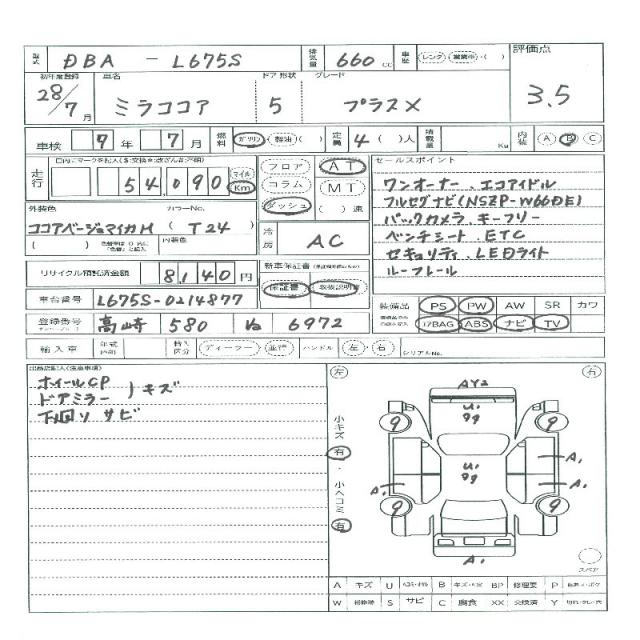 型式 DBA - L675S 排気量 660 cc 車歴 レンタ 営業車 ( ) 評価点
初年度登録 車名 ドア 形状 グレード
28/7 月 ミラココア 5 プラスX 3.5
車検 9 年 7 月 燃料 ガソリン 軽油 ( ) 定員 4 ( )人 積載量 Kg 内装 A B C
走行 54,090 マイル Km フロア AT セールスポイント
コラム MT ワンオーナー、エコアイドル
ダッシュ ( ) 速 フルセグナビ(NSZP-W66DE)
外装色 カラーNo. バックカメラ キーフリー
ココアベージュマイカM ( T24 ) 冷房 AC ベンチシート ETC
内装色 セキュリティ LEDライト
リサイクル預託済金額 8140 円 新車保証書 ルーフレール
車台番号 L675S-0214877 保証書 取扱説明書
登録番号 高崎 580 ね 6972 装備品 PS PW AW SR カワ
I7BAG ABS ナビ TV
輸入車 年式 輸入区分 ディーラー 並行 ハンドル 左 右 シリアルNo.
ホイールCP
ドアミラー ) キズ
下回り サビ
左 右
小キズ 有 ・ 小ヘコミ 有
AY2
U1
99
9 9
U1
99
A1
A1 A1
9 9
A1
スペア
A キズ U B BP 修理要 P
W S サビ C 腐食 XX 交換済 Y